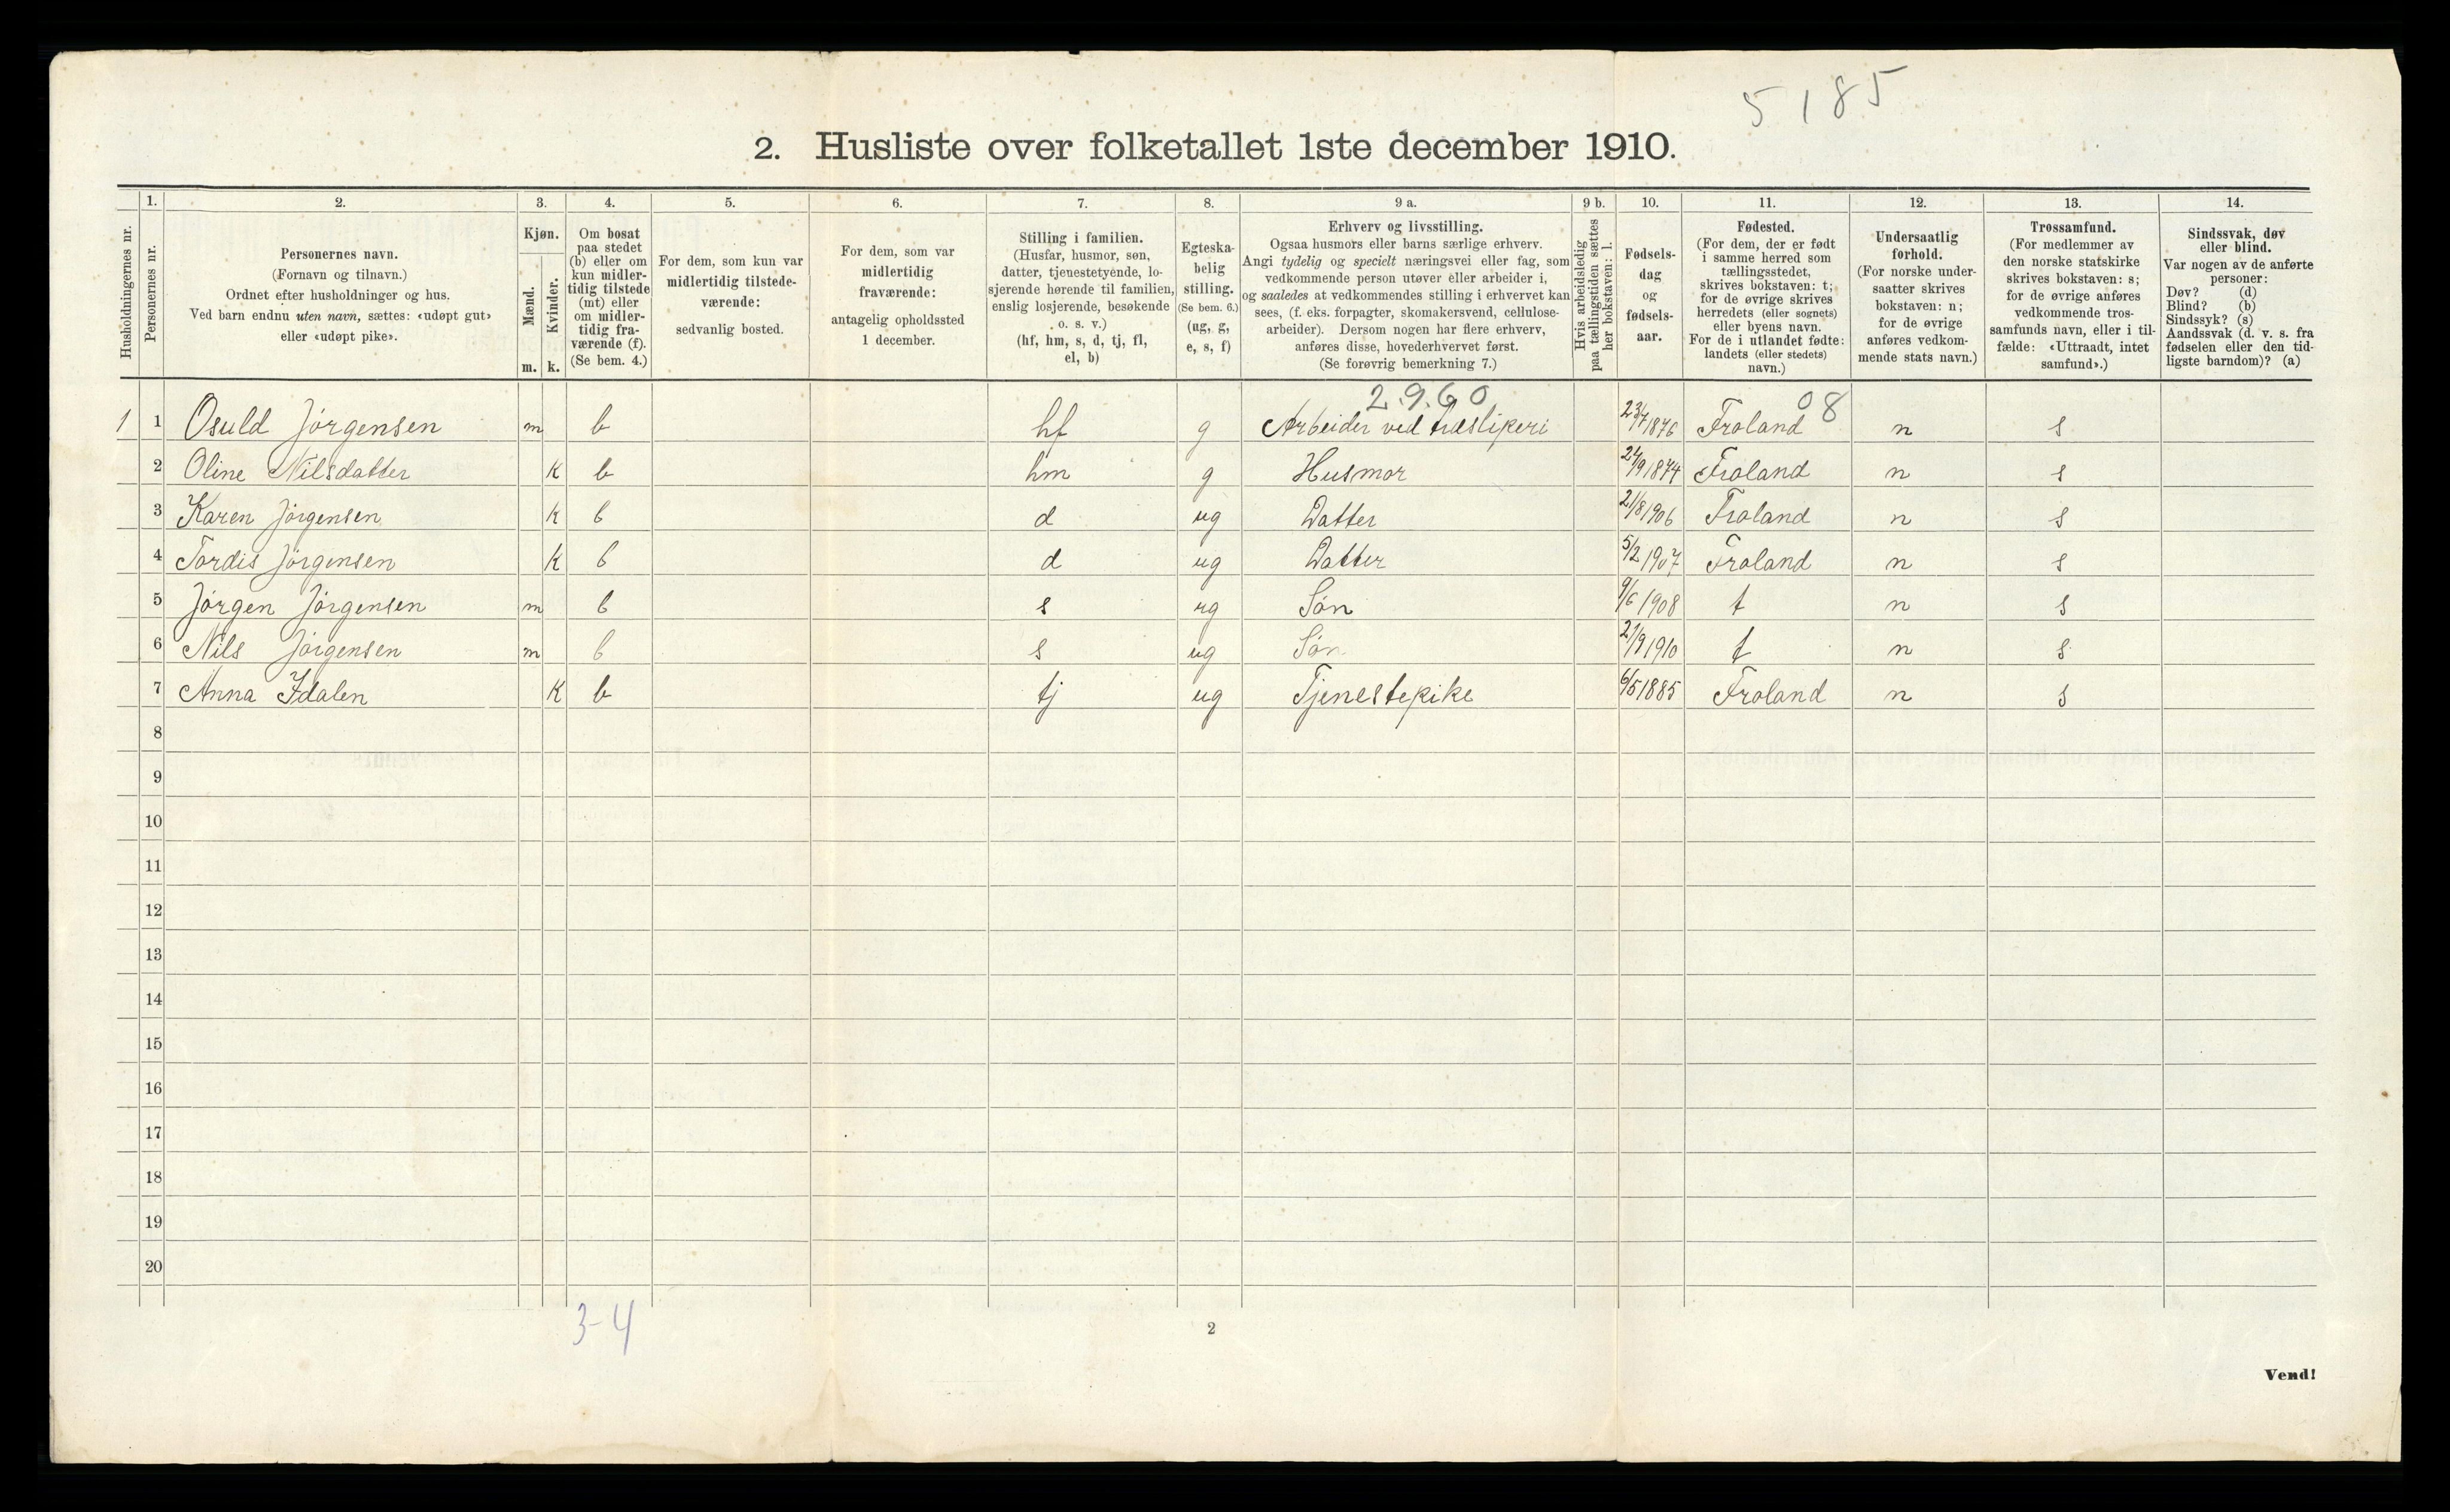 5185
2. Husliste over folketallet 1ste december 1910.
Husholdningernes nr.
1.
Personernes nr.
2.
Personernes navn.
(Fornavn og tilnavn.)
Ordnet efter husholdninger og hus.
Ved barn endnu uten navn, sættes: «udøpt gut»
eller «udøpt pike».
3.
Kjøn.
Mænd.
Kvinder.
m. k.
4.
Om bosat
paa stedet
(b) eller om
kun midler-
tidig tilstede
(mt) eller
om midler-
tidig fra-
værende (f).
(Se bem. 4.)
5.
For dem, som kun var
midlertidig tilstede-
værende:
sedvanlig bosted.
6.
For dem, som var
midlertidig
fraværende:
antagelig opholdssted
1 december.
7.
Stilling i familien.
(Husfar, husmor, søn,
datter, tjenestetyende, lo-
sjerende hørende til familien,
enslig losjerende, besøkende
o. s. v.)
(hf, hm, s, d, tj, fl,
el, b)
8.
Egteska-
belig
stilling.
(Se bem. 6.)
(ug, g,
e, s, f)
9 a.
Erhverv og livsstilling.
Ogsaa husmors eller barns særlige erhverv.
Angi tydelig og specielt næringsvei eller fag, som
vedkommende person utøver eller arbeider i,
og saaledes at vedkommendes stilling i erhvervet kan
sees, (f. eks. forpagter, skomakersvend, cellulose-
arbeider). Dersom nogen har flere erhverv,
anføres disse, hovederhvervet først.
(Se forøvrig bemerkning 7.)
9 b.
Hvis arbeidsledig
paa tællingstiden sættes
her bokstaven: l.
10.
Fødsels-
dag
og
fødsels-
aar.
11.
Fødested.
(For dem, der er født
i samme herred som
tællingsstedet,
skrives bokstaven: t;
for de øvrige skrives
herredets (eller sognets)
eller byens navn.
For de i utlandet fødte:
landets (eller stedets)
navn.)
12.
Undersaatlig
forhold.
(For norske under-
saatter skrives
bokstaven: n;
for de øvrige
anføres vedkom-
mende stats navn.)
13.
Trossamfund.
(For medlemmer av
den norske statskirke
skrives bokstaven: s;
for de øvrige anføres
vedkommende tros-
samfunds navn, eller i til-
fælde: «Uttraadt, intet
samfund».)
14.
Sindssvak, døv
eller blind.
Var nogen av de anførte
personer:
Døv? (d)
Blind? (b)
Sindssyk? (s)
Aandssvak (d. v. s. fra
fødselen eller den tid-
ligste barndom)? (a)
2.9.60 08
1 1 Osuld Jørgensen m b hf g Arbeider ved træsliperi 23/7 1876 Froland n s
2 Oline Nilsdatter k b hm g Husmor 24/9 1874 Froland n s
3 Karen Jørgensen k b d ug Datter 21/8 1906 Froland n s
4 Tordis Jørgensen k b d ug Datter 5/2 1907 Froland n s
5 Jørgen Jørgensen m b s ug Søn 9/6 1908 t n s
6 Nils Jørgensen m b s ug Søn 21/9 1910 t n s
7 Anna Idalen k b tj ug Tjenestepike 6/5 1885 Froland n s
8
9
10
11
12
13
14
15
16
17
18
19
20
3-4
2
Vend!